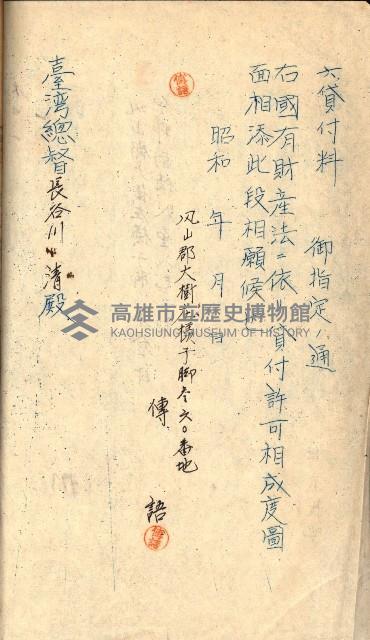 六貸付料　御指定ノ通
右國有財產法ニ依リ貸付許可相成度圖
面相添此段相願候也
昭和　年　月　日
鳳山郡大樹庄檨子脚六〇番地
傳　語
臺湾總督長谷川　清殿
高雄市立歷史博物館
KAOHSIUNG MUSEUM OF HISTORY